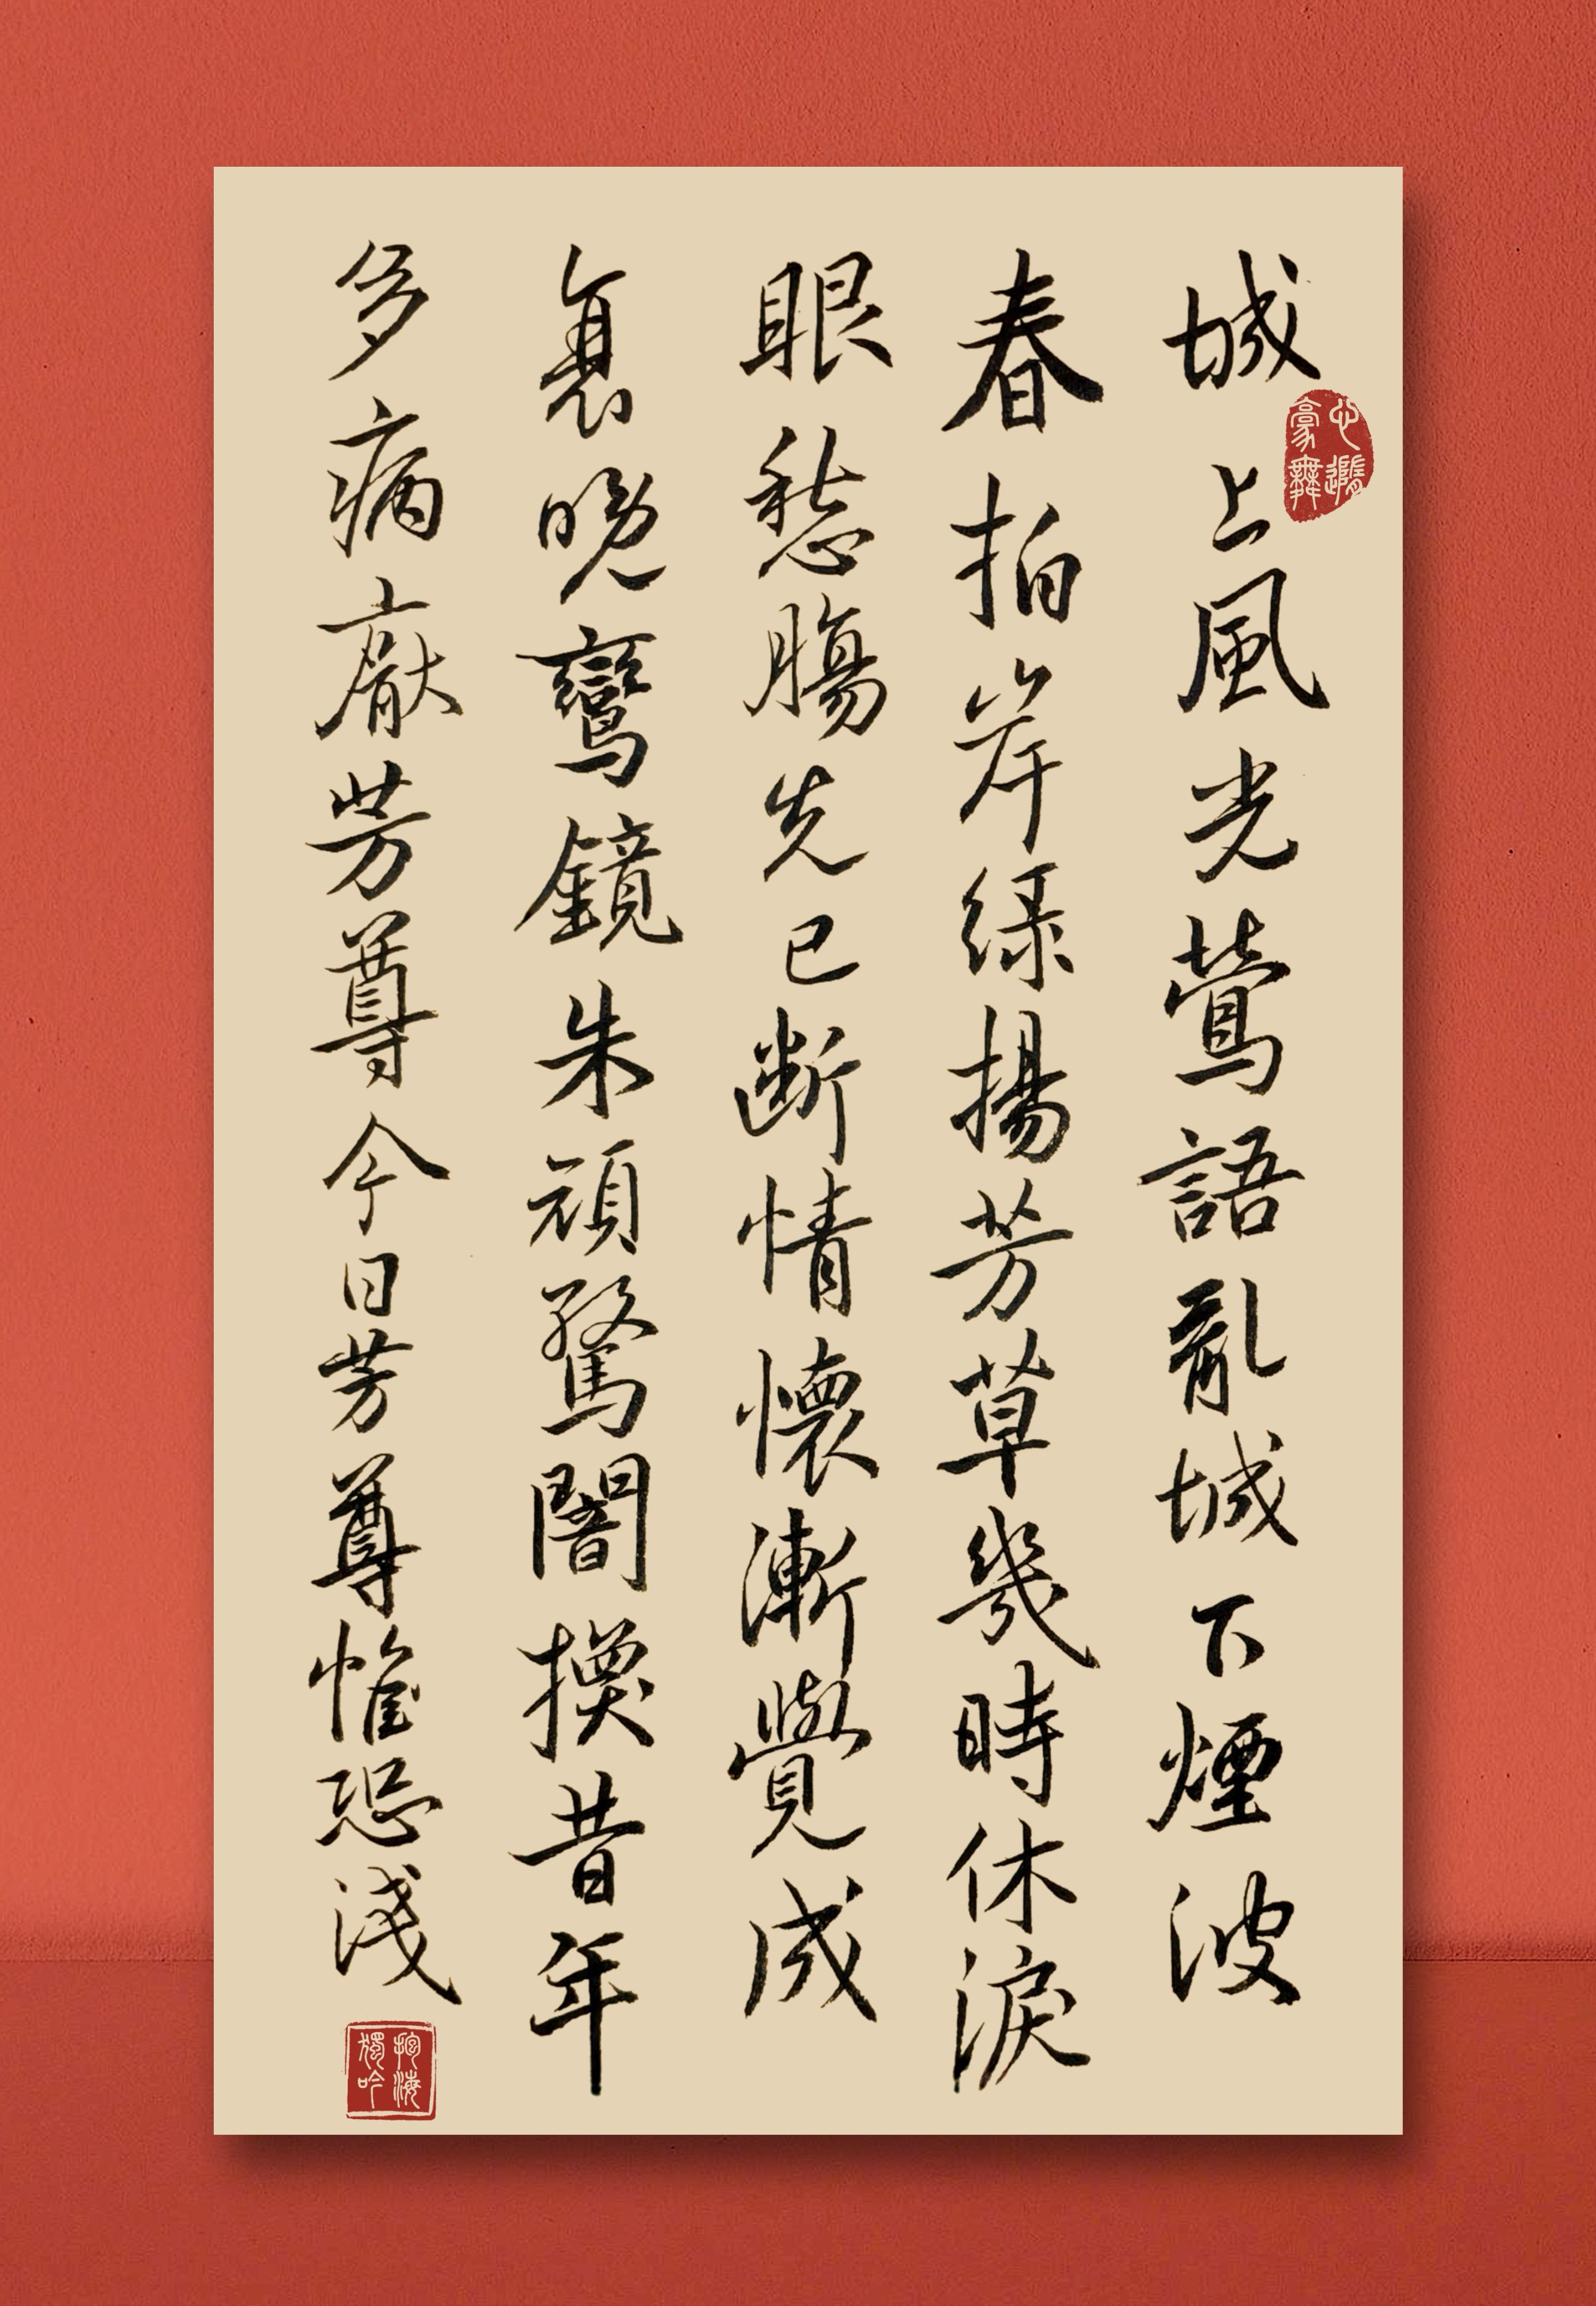 城上風光鶯語亂城下煙波
春拍岸綠揚芳草幾時休淚
眼愁腸先已斷情懷漸覺成
衰晚鸞鏡朱頑驚闇換昔年
多病厭芳尊今日芳尊惟恐淺